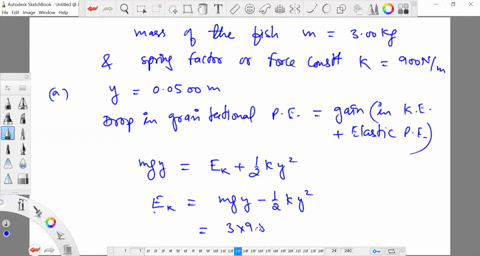 Autodesk SketchBook - Untitled @
mass of the fish m = 3.00 kg
& spring factor or force constt K = 900 N/m
(a) y = 0.0500 m
Drop in gravitational P.E. = gain (in K.E. + Elastic P.E.)
mgy = Ek + 1/2 k y²
Ek = mgy - 1/2 k y²
= 3×9.8